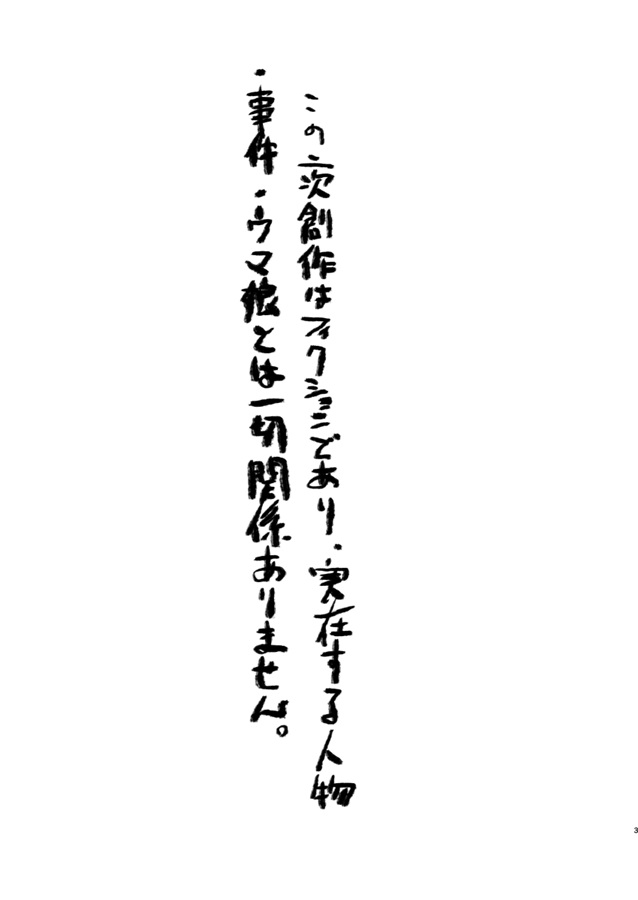 この二次創作はフィクションであり・実在する人物
・事件・ウマ娘とは一切関係ありません。
3